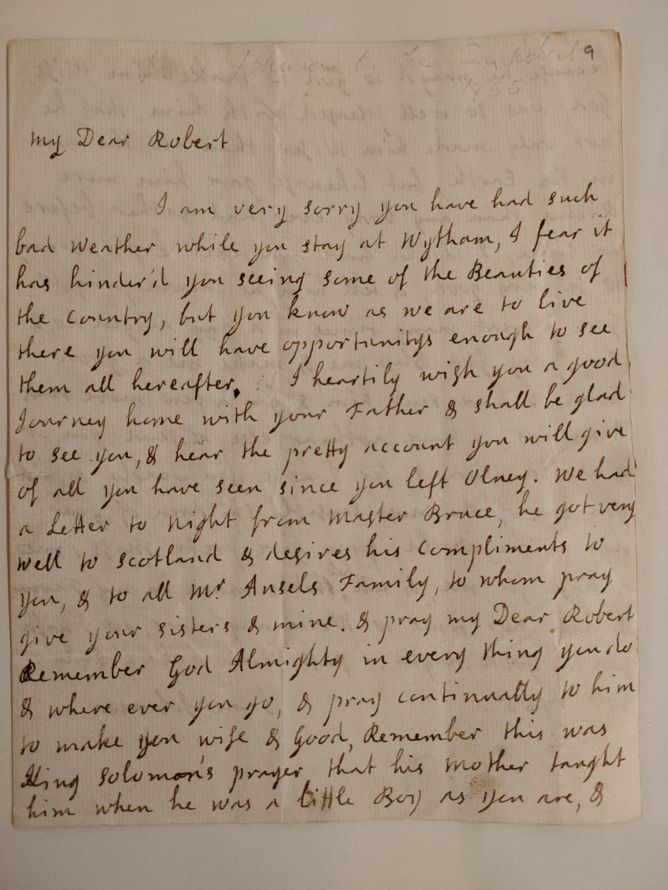 9
My Dear Robert
I am very sorry you have had such
bad weather while you stay at Wytham, I fear it
has hinder'd you seeing some of the Beauties of
the Country, but you know as we are to live
there you will have opportunitys enough to see
them all hereafter. I heartily wish you a good
Journey home with your Father & shall be glad
to see you, & hear the pretty account you will give
of all you have seen since you left Olney. We had
a Letter to night from Master Bruce, he got very
well to Scotland & desires his Compliments to
you, & to all Mr Ansels Family, to whom pray
give your sisters & mine. & pray my Dear Robert
Remember God Almighty in every thing you do
& where ever you go, & pray continually to him
to make you wise & Good, Remember this was
King Solomon's prayer that his mother taught
him when he was a little Boy as you are, &